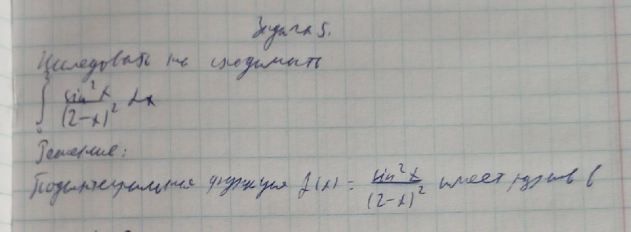 Задача 5.
Исследовать на сходимость
∫ sin²x / (2-x)² dx
Решение:
Подынтегральная функция f(x) = sin²x / (2-x)² имеет разрыв в